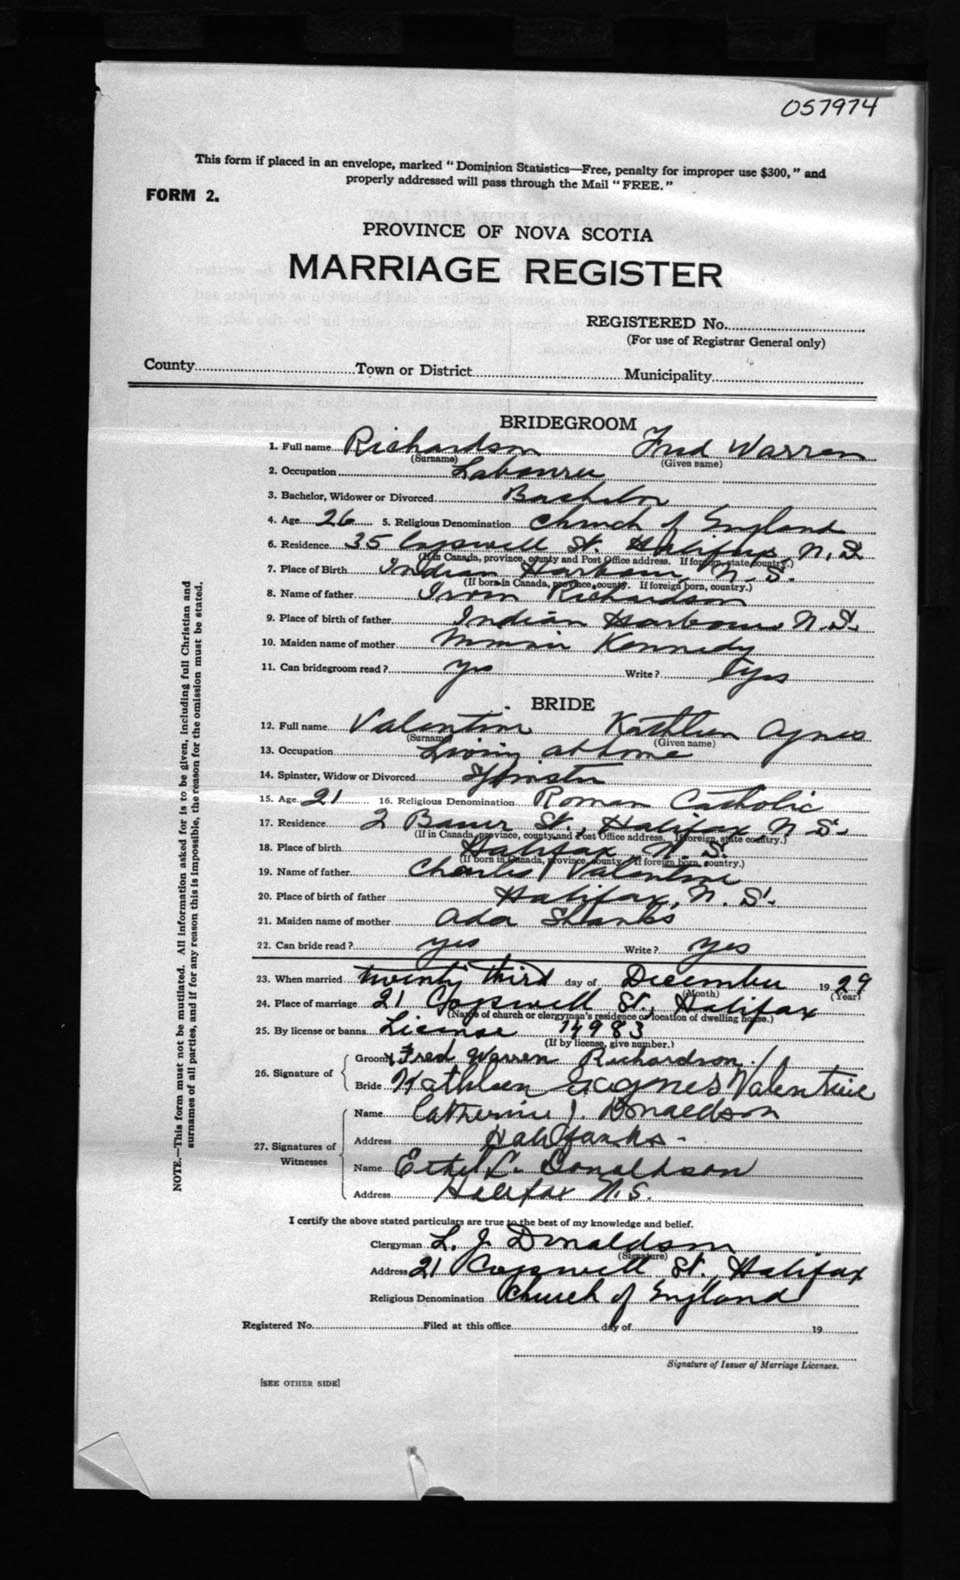 057974
This form if placed in an envelope, marked "Dominion Statistics—Free, penalty for improper use $300," and
properly addressed will pass through the Mail "FREE."
FORM 2.
PROVINCE OF NOVA SCOTIA
MARRIAGE REGISTER
REGISTERED No.
(For use of Registrar General only)
County Town or District Municipality
BRIDEGROOM
1. Full name Richardson Fred Warren
(Surname) (Given name)
2. Occupation Labourer
3. Bachelor, Widower or Divorced Bachelor
4. Age 26 5. Religious Denomination Church of England
6. Residence 35 Cogswell St. Halifax, N.S.
(If in Canada, province, county and Post Office address. If foreign, state country.)
7. Place of Birth Indian Harbour, N.S.
(If born in Canada, province, county. If foreign born, country.)
8. Name of father Irvin Richardson
9. Place of birth of father Indian Harbour N.S.
10. Maiden name of mother Minnie Kennedy
11. Can bridegroom read? yes Write? yes
BRIDE
12. Full name Valentine Kathleen Agnes
(Surname) (Given name)
13. Occupation Living at home
14. Spinster, Widow or Divorced Spinster
15. Age 21 16. Religious Denomination Roman Catholic
17. Residence 2 Bauer St., Halifax N.S.
(If in Canada, province, county and Post Office address. If foreign, state country.)
18. Place of birth Halifax N.S.
(If born in Canada, province, county. If foreign born, country.)
19. Name of father Charles Valentine
20. Place of birth of father Halifax, N.S.
21. Maiden name of mother Ada Shanks
22. Can bride read? yes Write? yes
23. When married twenty third day of December 1929
(Month) (Year)
24. Place of marriage 21 Cogswell St., Halifax
(Name of church or clergyman's residence or location of dwelling house.)
25. By license or banns License 14983
(If by license, give number.)
26. Signature of
Groom Fred Warren Richardson
Bride Kathleen Agnes Valentine
27. Signatures of Witnesses
Name Catherine J. Donaldson
Address
Name Ethel L. Donaldson
Address Halifax N.S.
I certify the above stated particulars are true to the best of my knowledge and belief.
Clergyman L. J. Donaldson
(Signature)
Address 21 Cogswell St. Halifax
Religious Denomination Church of England
Registered No. Filed at this office day of 19
Signature of Issuer of Marriage Licenses.
[SEE OTHER SIDE]
NOTE.—This form must not be mutilated. All information asked for is to be given, including full Christian and
surnames of all parties, and if for any reason this is impossible, the reason for the omission must be stated.